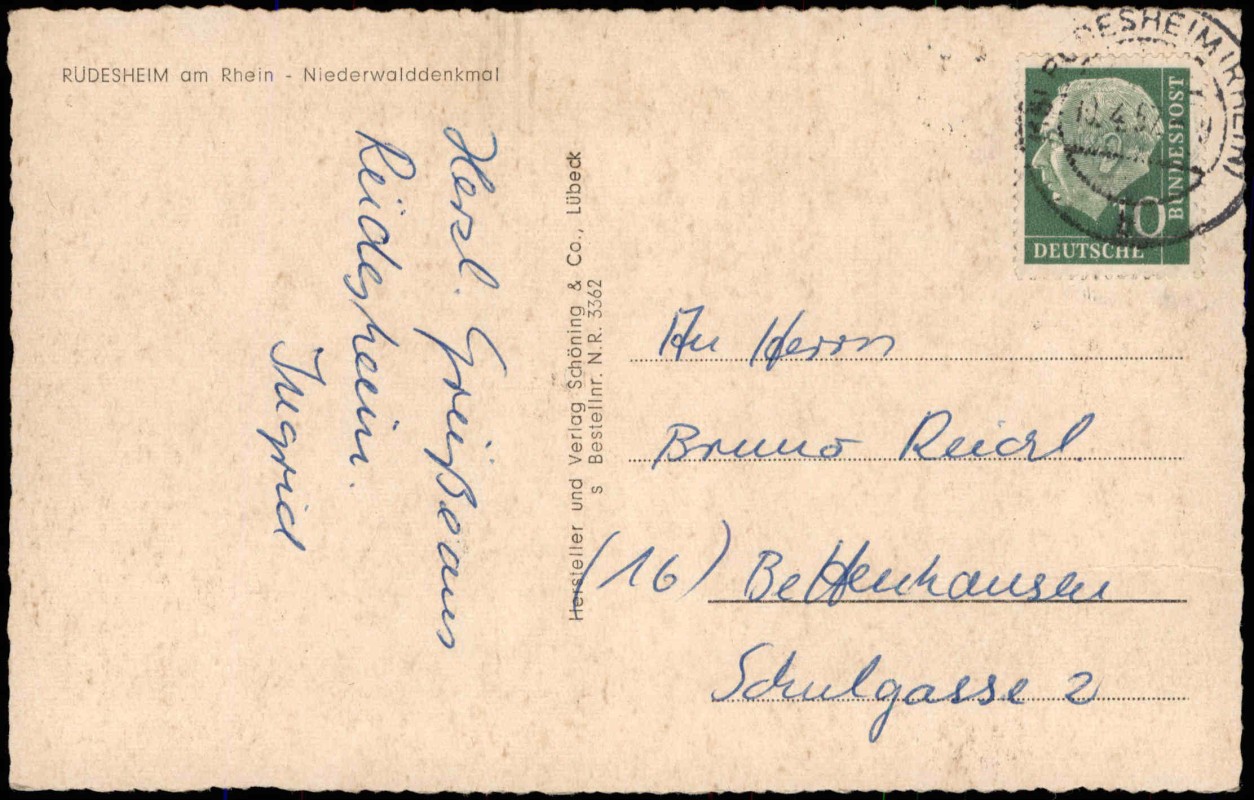 RÜDESHEIM am Rhein - Niederwalddenkmal
Herzl. Grüße aus
Reidesheim.
Ingrid
Hersteller und Verlag Schöning & Co., Lübeck
S Bestellnr. N.R. 3362
RÜDESHEIM (RHEIN)
10
BUNDESPOST
DEUTSCHE
An Herrn
Bruno Reichl.
(16) Bettenhausen
Schulgasse 2